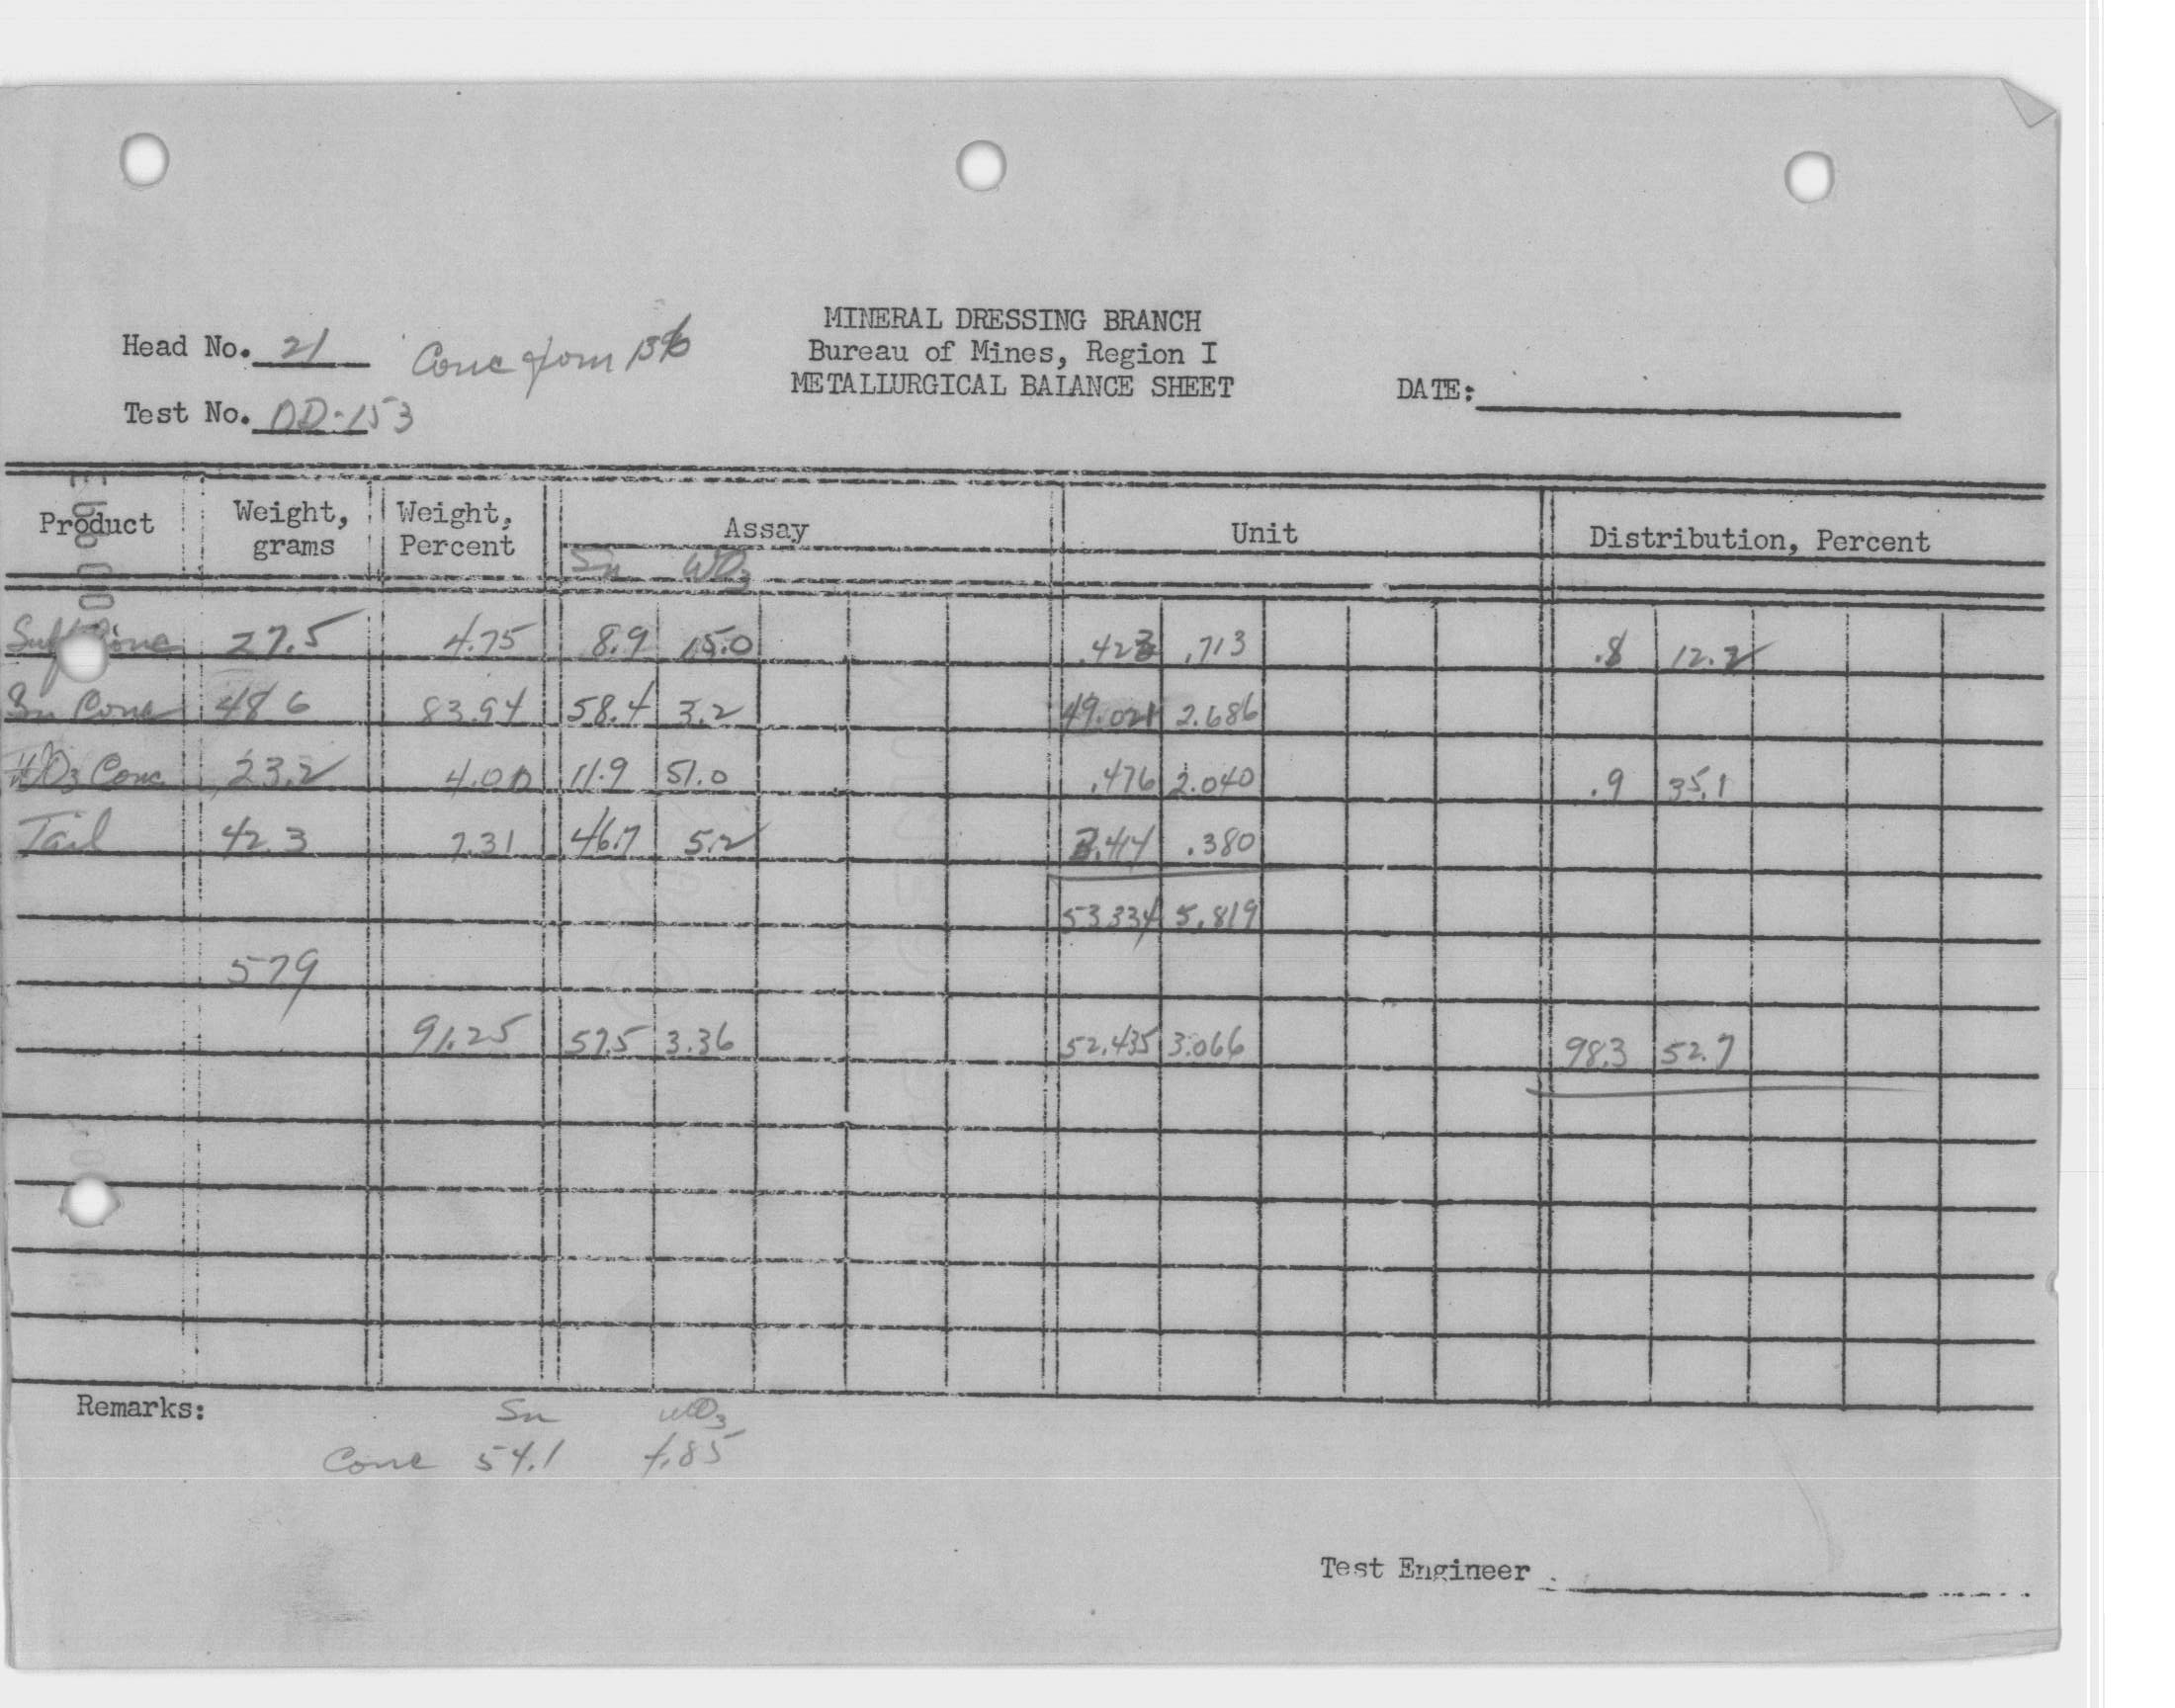 MINERAL DRESSING BRANCH
Head No. 21 Conc from 136
Bureau of Mines, Region I
METALLURGICAL BALANCE SHEET
DATE:
Test No. DD-153
Product Weight, grams Weight, Percent Assay Unit Distribution, Percent
Sn WO3
Sulf Conc 27.5 4.75 8.9 15.0 .423 .713 .8 12.2
Sn Conc 486 83.94 58.4 3.2 49.021 2.686
WO3 Conc 23.2 4.00 11.9 51.0 .476 2.040 .9 35.1
Tail 42.3 7.31 46.7 5.2 3.414 .380
53.334 5.819
579
91.25 57.5 3.36 52.435 3.066 98.3 52.7
Remarks:
Sn WO3
Conc 54.1 4.85
Test Engineer